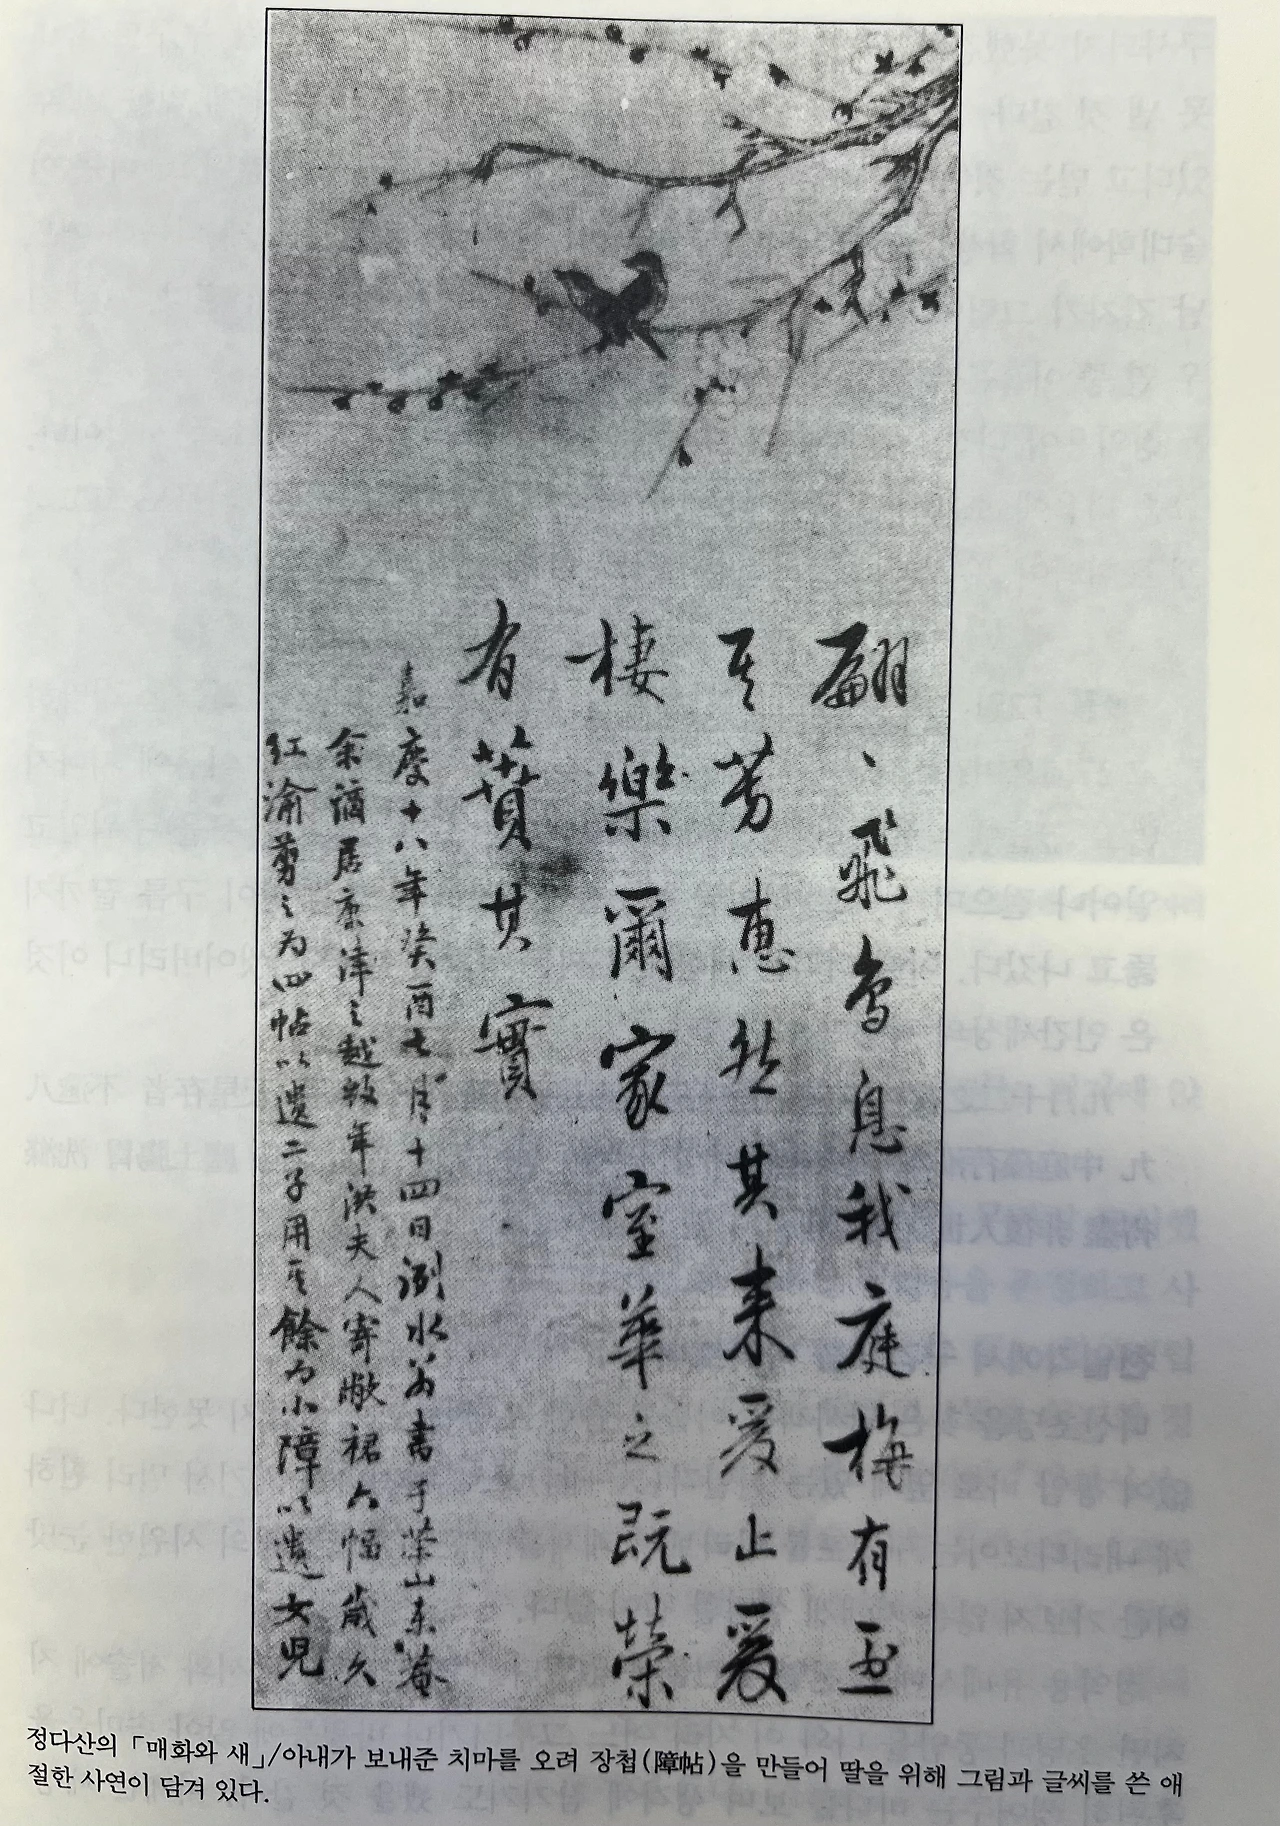 翩〻飛鳥息我庭梅有烝
其芳惠然其來爰止爰
棲樂爾家室華之旣榮
有蕡其實
嘉慶十八年癸酉七月十四日洌水翁書于茶山東菴
余謫居康津之越數年洪夫人寄敝裙六幅歲久
紅渝剪之爲四帖以遺二子用其餘爲小障以遺女兒
정다산의 「매화와 새」/아내가 보내준 치마를 오려 장첩(障帖)을 만들어 딸을 위해 그림과 글씨를 쓴 애
절한 사연이 담겨 있다.